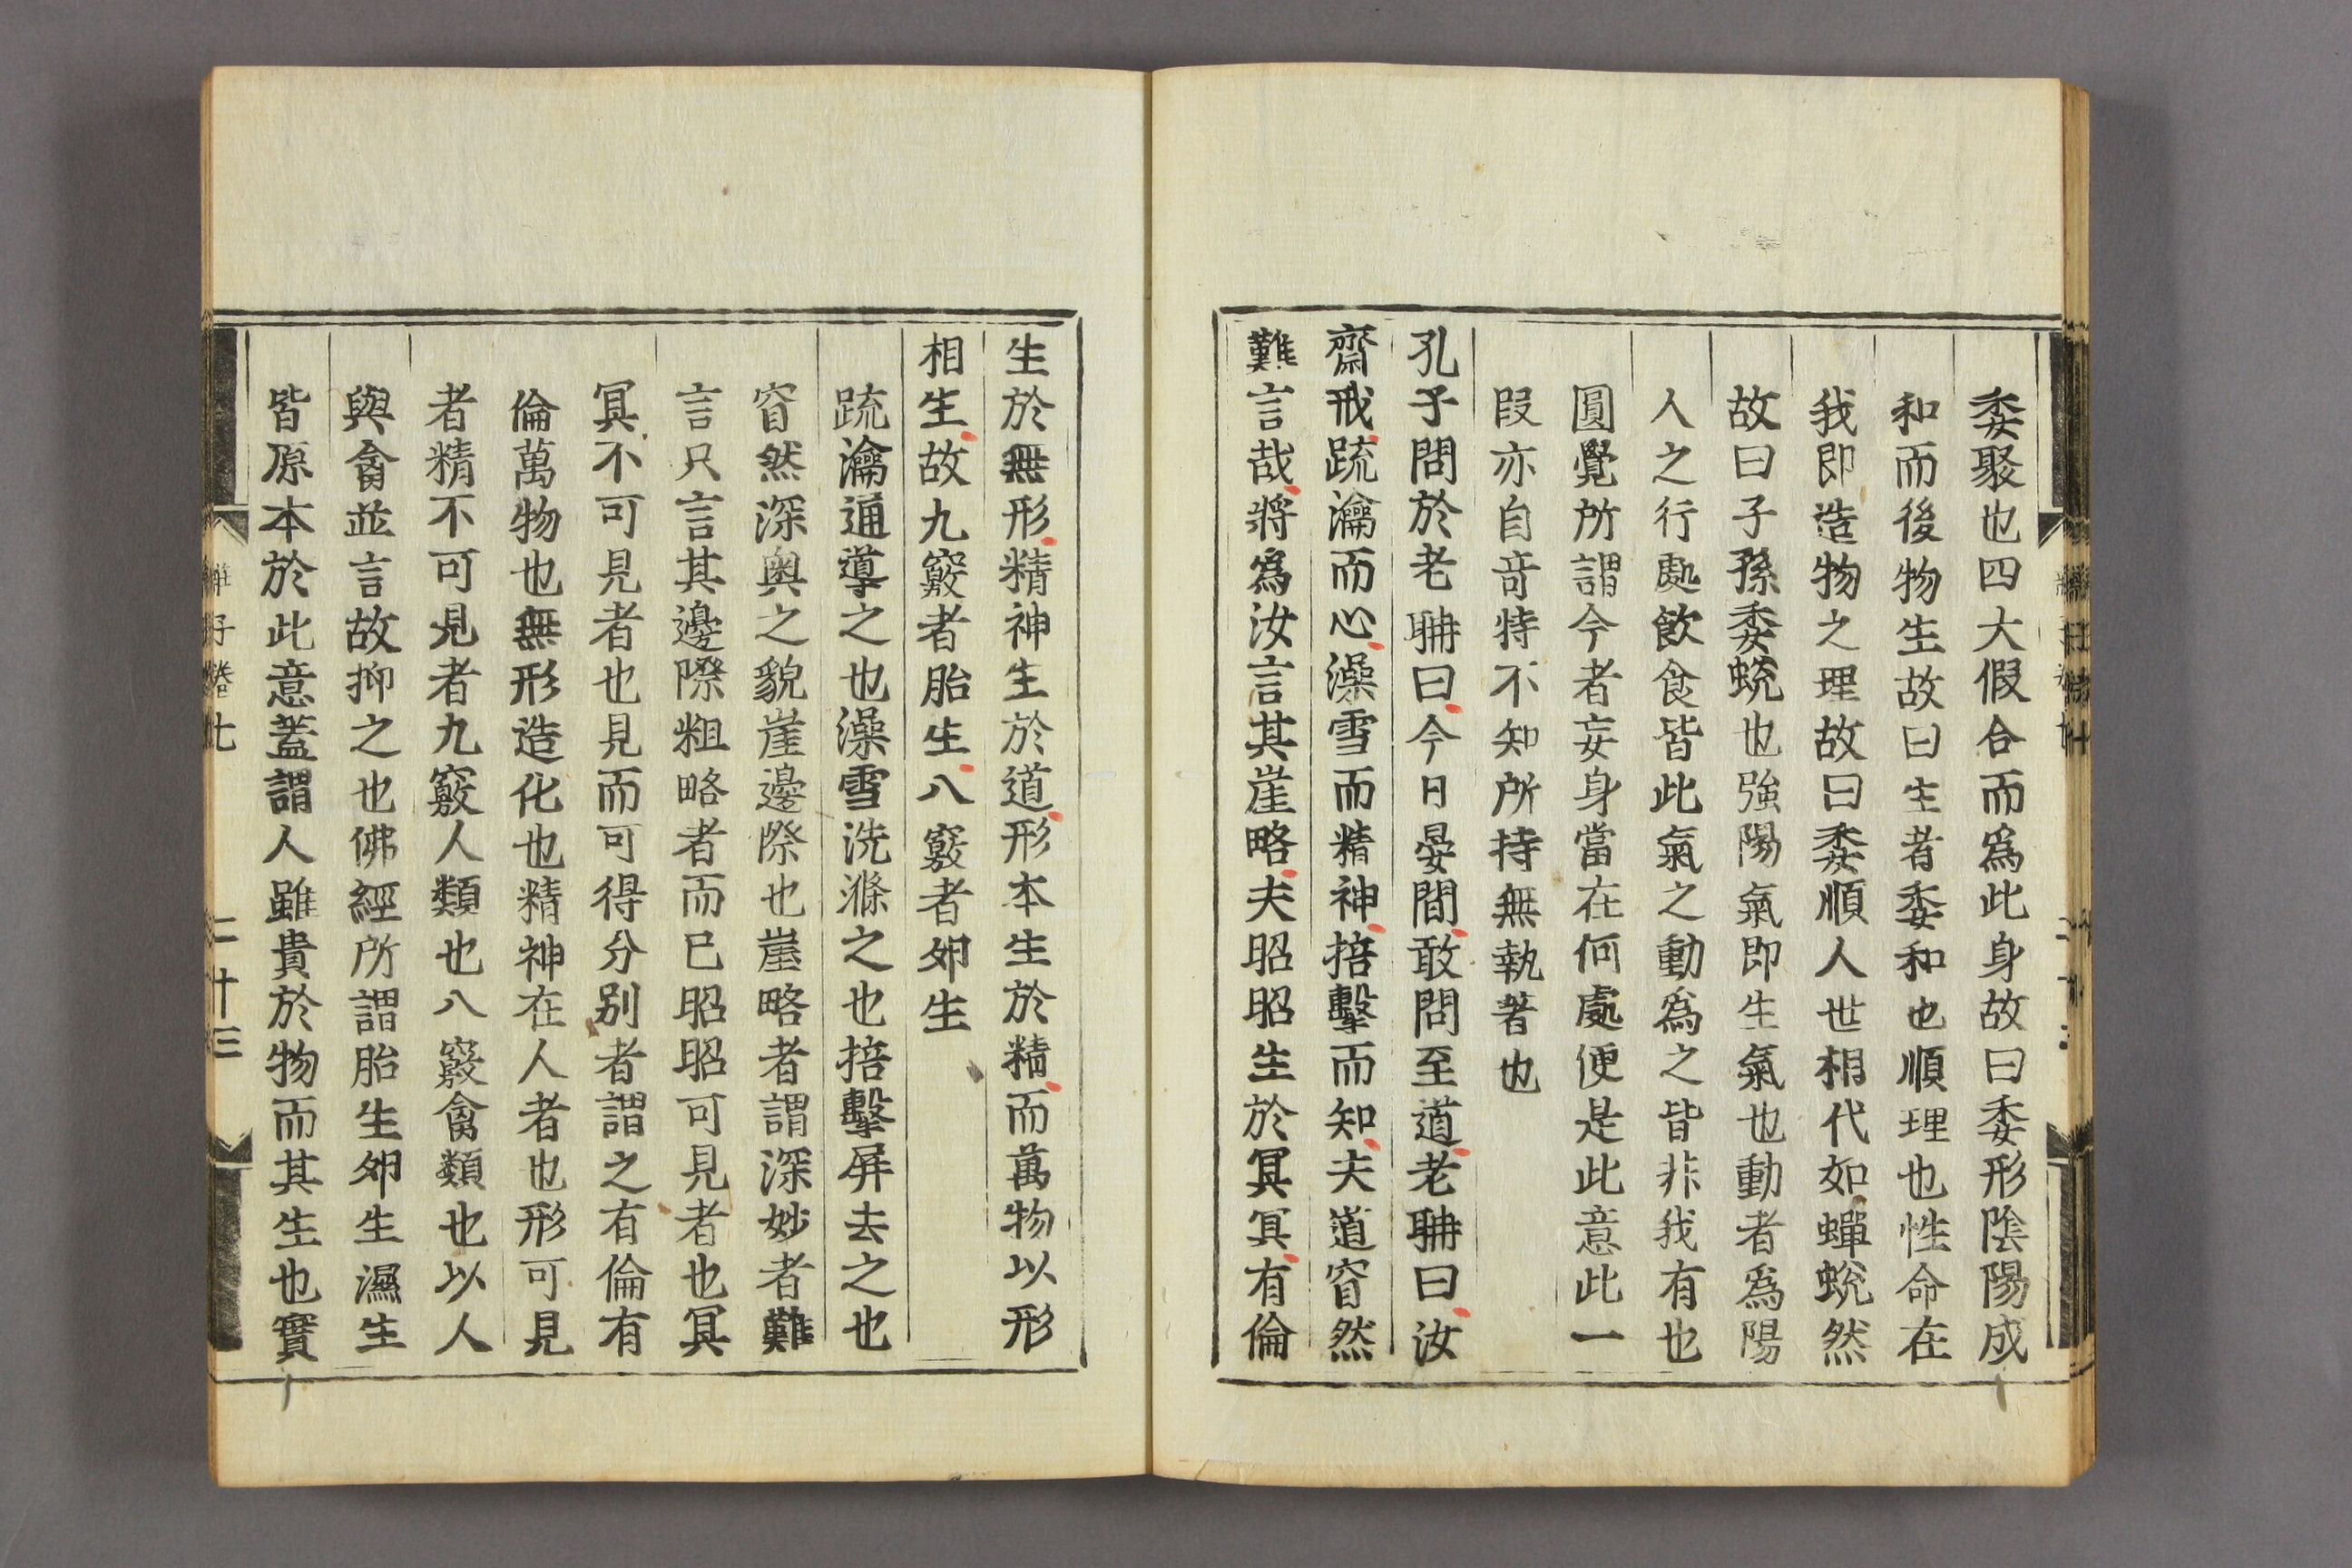 委聚也四大假合而爲此身故曰委形陰陽成
和而後物生故曰生者委和也順理也性命在
我即造物之理故曰委順人世相代如蟬蛻然
故曰子孫委蛻也強陽氣即生氣也動者爲陽
人之行處飲食皆此氣之動爲之皆非我有也
圓覺所謂今者妄身當在何處便是此意此一
段亦自竒特不知所持無執著也
孔子問於老聃曰今日晏間敢問至道老聃曰汝
齋戒疏瀹而心澡雪而精神掊擊而知夫道窅然
難言哉將爲汝言其崖略夫昭昭生於冥冥有倫
生於無形精神生於道形本生於精而萬物以形
相生故九竅者胎生八竅者卵生
疏瀹通導之也澡雪洗滌之也掊擊屏去之也
窅然深奥之貌崖邊際也崖略者謂深妙者難
言只言其邊際粗略者而已昭昭可見者也冥
冥不可見者也見而可得分别者謂之有倫有
倫萬物也無形造化也精神在人者也形可見
者精不可見者九竅人類也八竅禽類也以人
與禽並言故抑之也佛經所謂胎生卵生濕生
皆原本於此意蓋謂人雖貴於物而其生也實
莊子卷七 二十三